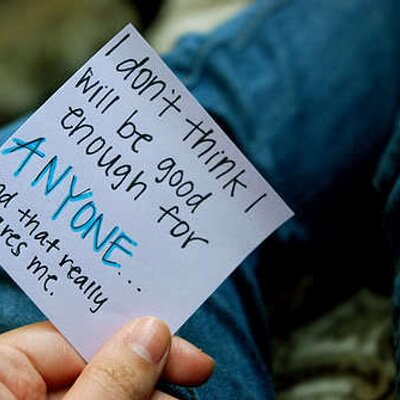 I don't think I
will be good
enough for
ANYONE...
nd that really
ares me.